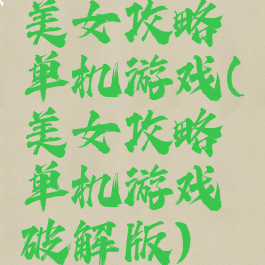 美女攻略
单机游戏(
美女攻略
单机游戏
破解版)